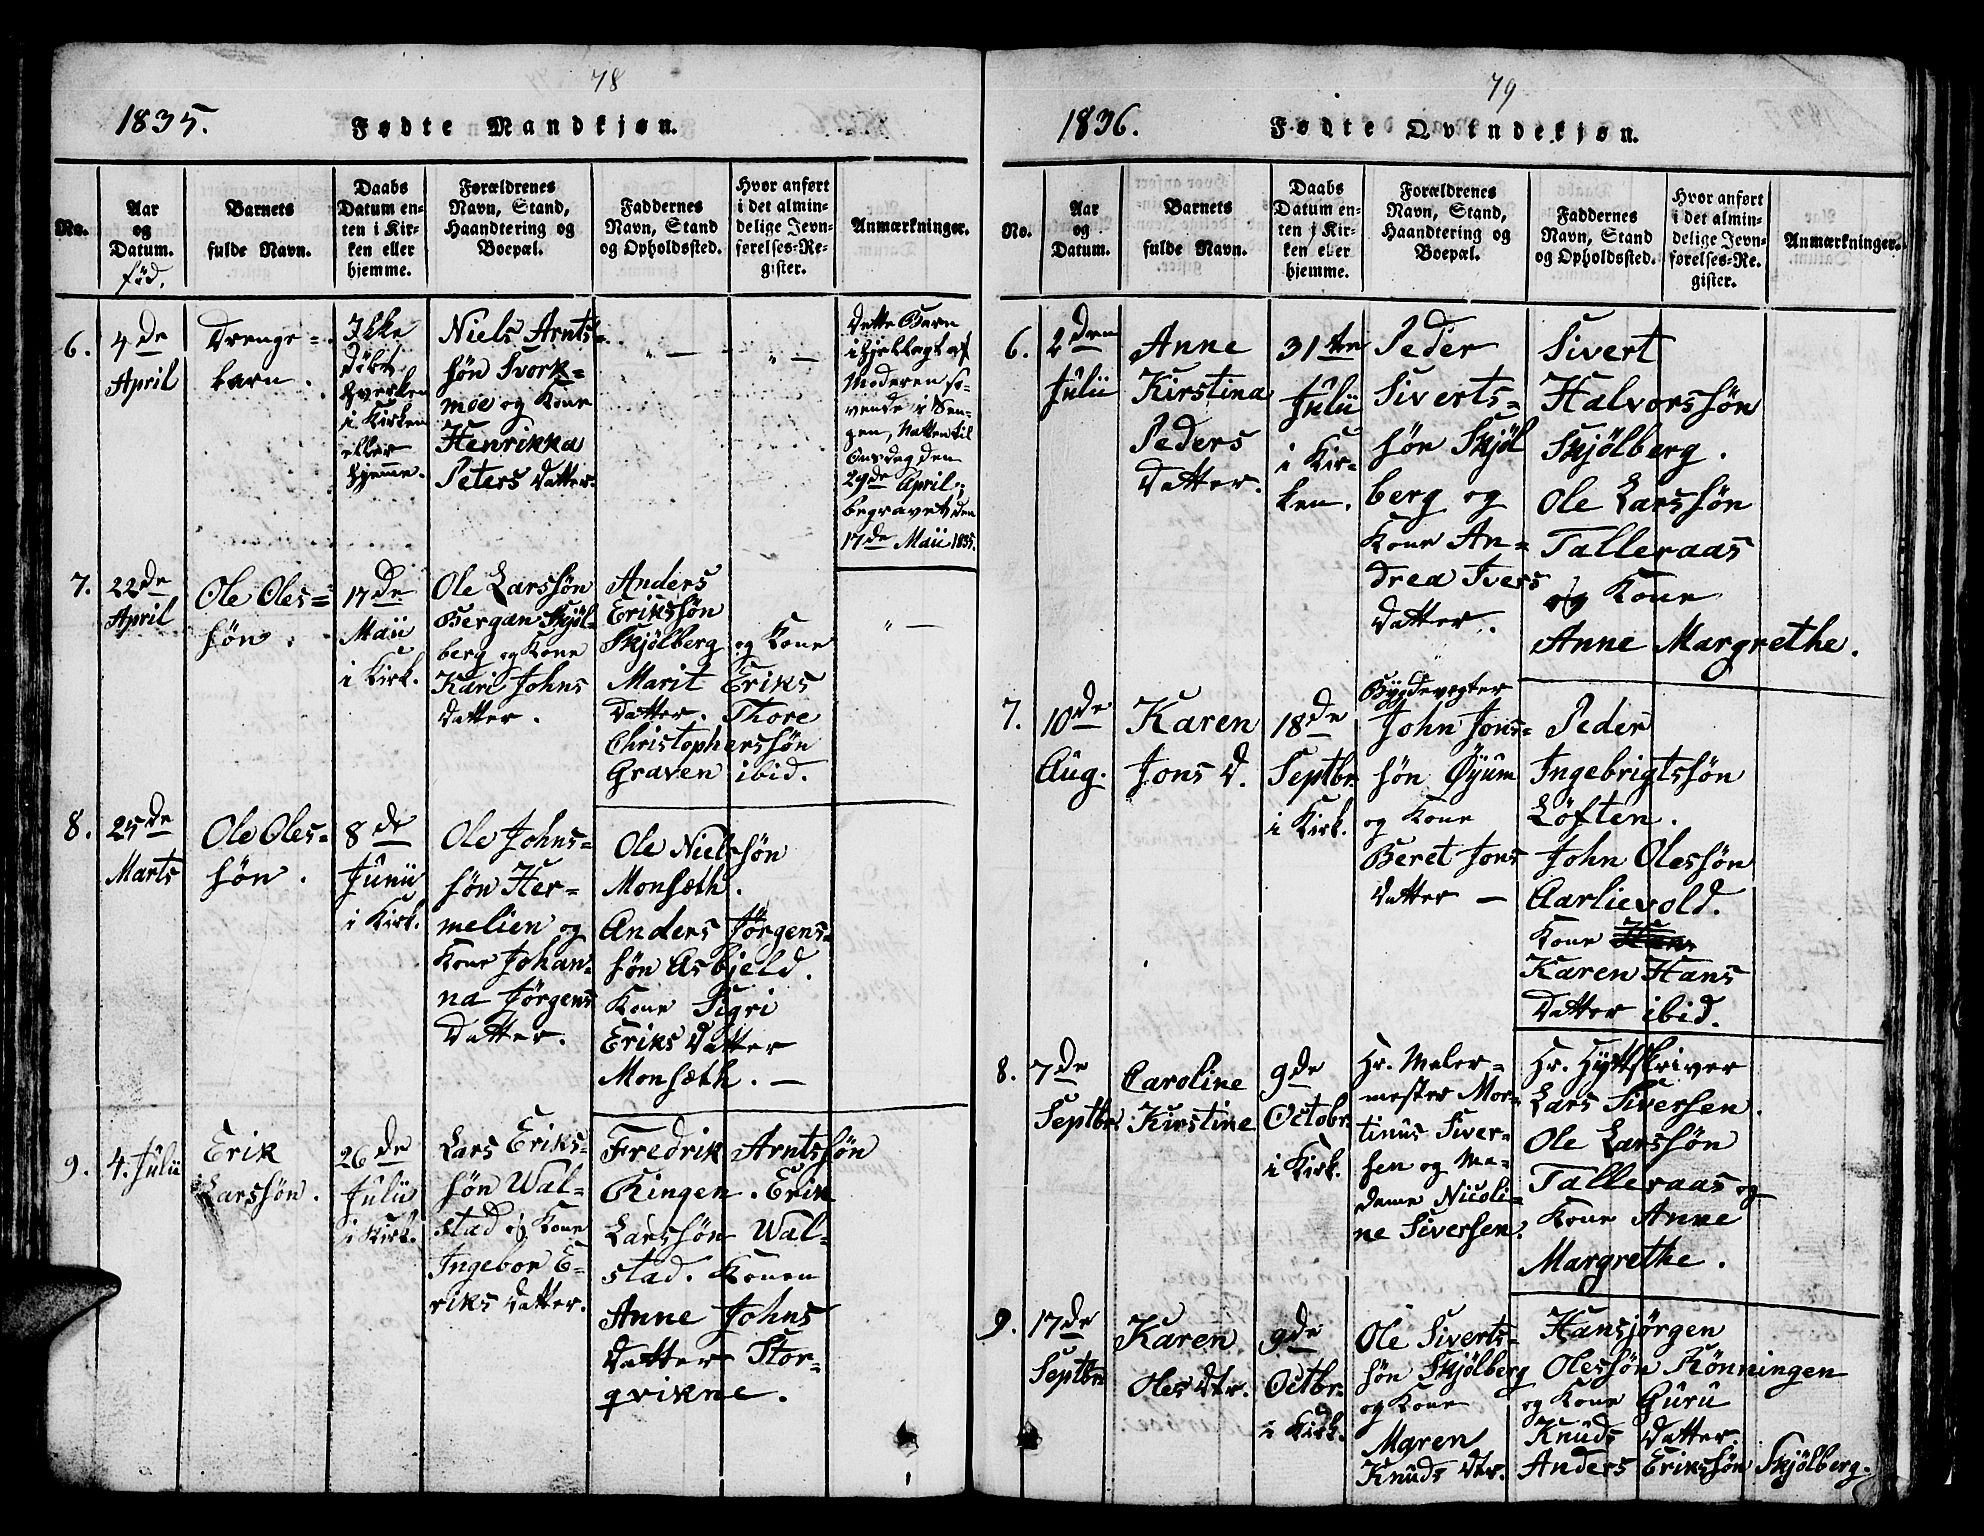 78
1835.
Fødte Mandkjøn.
No.
Aar
og
Datum.
fød.
Barnets
fulde Navn.
Daabs
Datum en-
ten i Kir-
ken eller
hjemme.
Forældrenes
Navn, Stand,
Haandtering og
Boepæl.
Faddernes
Navn, Stand
og Opholdssted.
Hvor anført
i det almin-
delige Jevn-
førelses-Re-
gister.
Anmærkninger.
6.
4de
April
Drenge-
barn.
Ikke
Døbt
hverken
i Kirken
eller
hjemme.
Niels Arnts-
søn Svork-
moe og Kone
Henrikka
Peters Datter.
" —
" —
Dette Barn
ihjellagt af
Moderen so-
vende i Sen-
gen, Natten til
Onsdag den
29de April,
begravet den
17de Maii 1835.
7.
22de
April
Ole Oles-
søn.
17de
Maii
i Kirk.
Ole Larssøn
Bergan Skjøl-
berg og Kone
Kari Johns
Datter.
Anders
Erikssøn
Skjølberg og Kone
Marit Eriks
Datter. Thore
Christopherssøn
Graven ibid.
" —
8.
25de
Marts
Ole Oles-
søn.
8de
Junii
i Kirk.
Ole Johns-
søn Her-
melien og
Kone Johan-
na Jørgens
Datter.
Ole Nielssøn
Monsæth.
Anders Jørgens-
søn Asbjeld.
Kone Sigri
Eriks Datter
Monsæth. —
9.
4. Julii
Erik
Larssøn.
26de
Julii
i Kirk.
Lars Eriks-
søn Wal-
stad og Kone
Ingebor E-
riks Datter.
Fredrik Arntssøn
Ringen. Erik
Larssøn Wal-
stad. Konen
Anne Johns
Datter Stor-
qvikne.
79
1836.
Fødte Qvindekjøn.
No.
Aar
og
Datum.
Barnets
fulde Navn.
Daabs
Datum en-
ten i Kir-
ken eller
hjemme.
Forældrenes
Navn, Stand,
Haandtering og
Boepæl.
Faddernes
Navn, Stand
og Opholdssted.
Hvor anført
i det almin-
delige Jevn-
førelses-Re-
gister.
Anmærkninger.
6.
2den
Julii
Anne
Kirstina
Peders
Datter.
31te
Julii
i Kir-
ken.
Peder
Siverts-
søn Skjøl
berg og
Kone An-
drea Ivers
Datter.
Sivert
Halvorssøn
Skjølberg.
Ole Larssøn
Talleraas
og Kone
Anne Margrethe.
7.
10de
Aug.
Karen
Jons D.
18de
Septbr.
i Kirk.
Bygdevægter
John Jons-
søn Øyum
og Kone
Beret Jons
Datter —
Peder
Ingebrigtssøn
Løften.
John Olessøn
Aarlievold.
Kone
Karen Hans
Datter ibid.
8.
7de
Septbr.
Caroline
Kirstine
9de
Octobr.
i Kirk.
Hr. Maler-
mester Mor-
tinus Siver-
sen og Ma-
dame Nicoli-
ne Siversen.
Hr. Hytskriver
Lars Siversen.
Ole Larssøn
Talleraas og
Kone Anne
Margrethe.
9.
17de
Septbr.
Karen
Oles Dtr.
9de
Octbr.
i Kirk.
Ole Siverts-
søn Skjølberg
og Kone
Maren
Knuds Dtr.
Hansjørgen
Olessøn Rønningen
og Kone Guru
Knuds Datter
Anders Erikssøn Skjølberg.